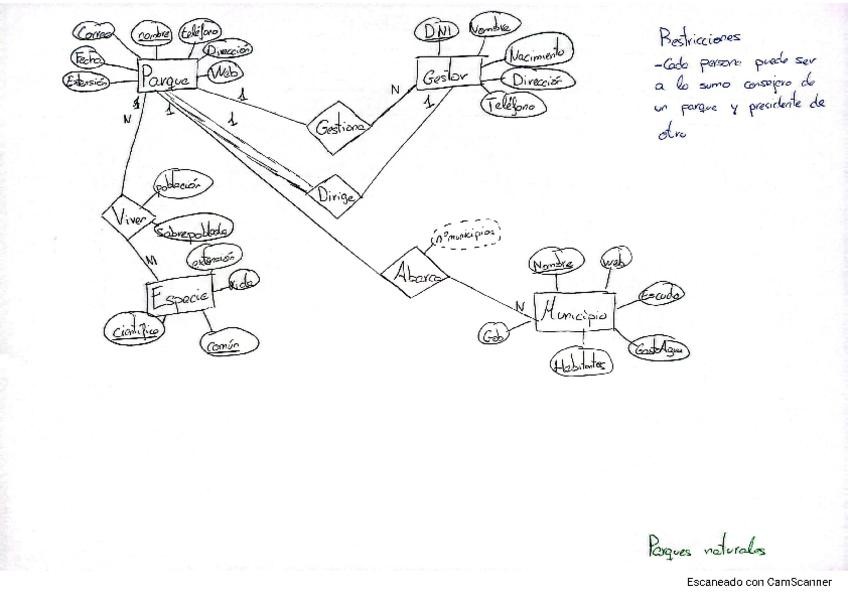 Correo
nombre
teléfono
Fecha
Dirección
Extensión
Parque
Web
DNI
Nombre
Gestor
Nacimiento
Dirección
Teléfono
Restricciones
-Cada persona puede ser
a lo sumo consejero de
un parque y presidente de
otro
1
1
1
1
N
N
1
Gestiona
Dirige
Viver
población
Sobrepoblada
M
extensión
Especie
científico
común
Abarca
nºmunicipios
N
Nombre
web
Escudo
Municipio
Habitantes
GastoAgua
Parques naturales
Escaneado con CamScanner